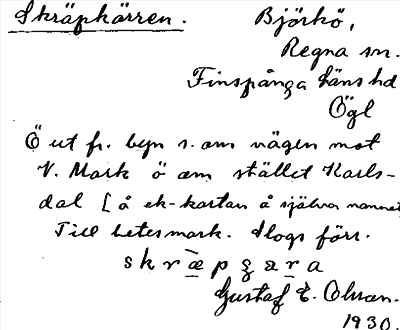 Skräpkärren.
Björkö,
Regna sn.
Finspånga läns hd
Ögl
Ö ut fr. byn s. om vägen mot
V. Mark ö om stället Karls-
dal [å ek-kartan å själva namnet
Till betesmark. Slogs förr.
skræpgæra
Gustaf E. Olsson.
1930.